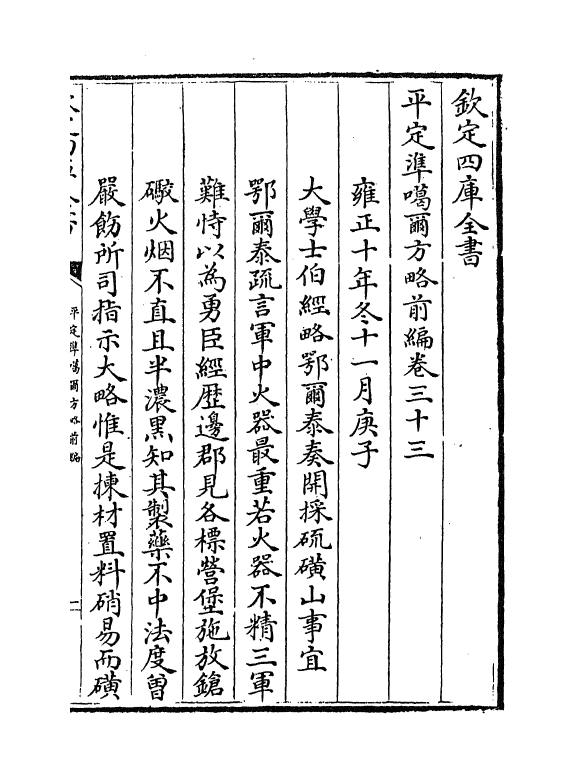 欽定四庫全書
平定準噶爾方略前編卷三十三
雍正十年冬十一月庚子
大學士伯經略鄂爾泰奏開採硫磺山事宜
鄂爾泰疏言軍中火器最重若火器不精三軍
難恃以為勇臣經歴邊郡見各標營堡施放鎗
礮火烟不直且半濃黒知其製藥不中法度曽
嚴飭所司指示大略惟是揀材置料硝易而磺
平定準噶爾方略前編
一